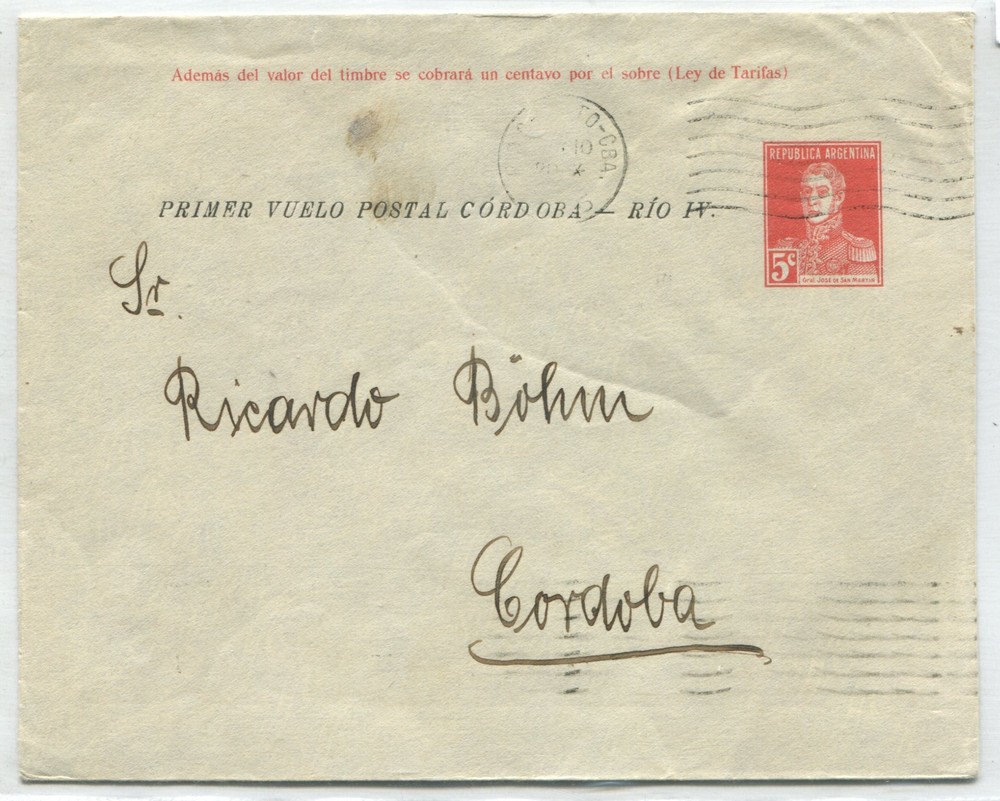 Además del valor del timbre se cobrará un centavo por el sobre (Ley de Tarifas)
TO-CBA.
10
REPUBLICA ARGENTINA
PRIMER VUELO POSTAL CÓRDOBA — RÍO IV.
5c
Gral. José de San Martín
Sr.
Ricardo Böhm
Cordoba